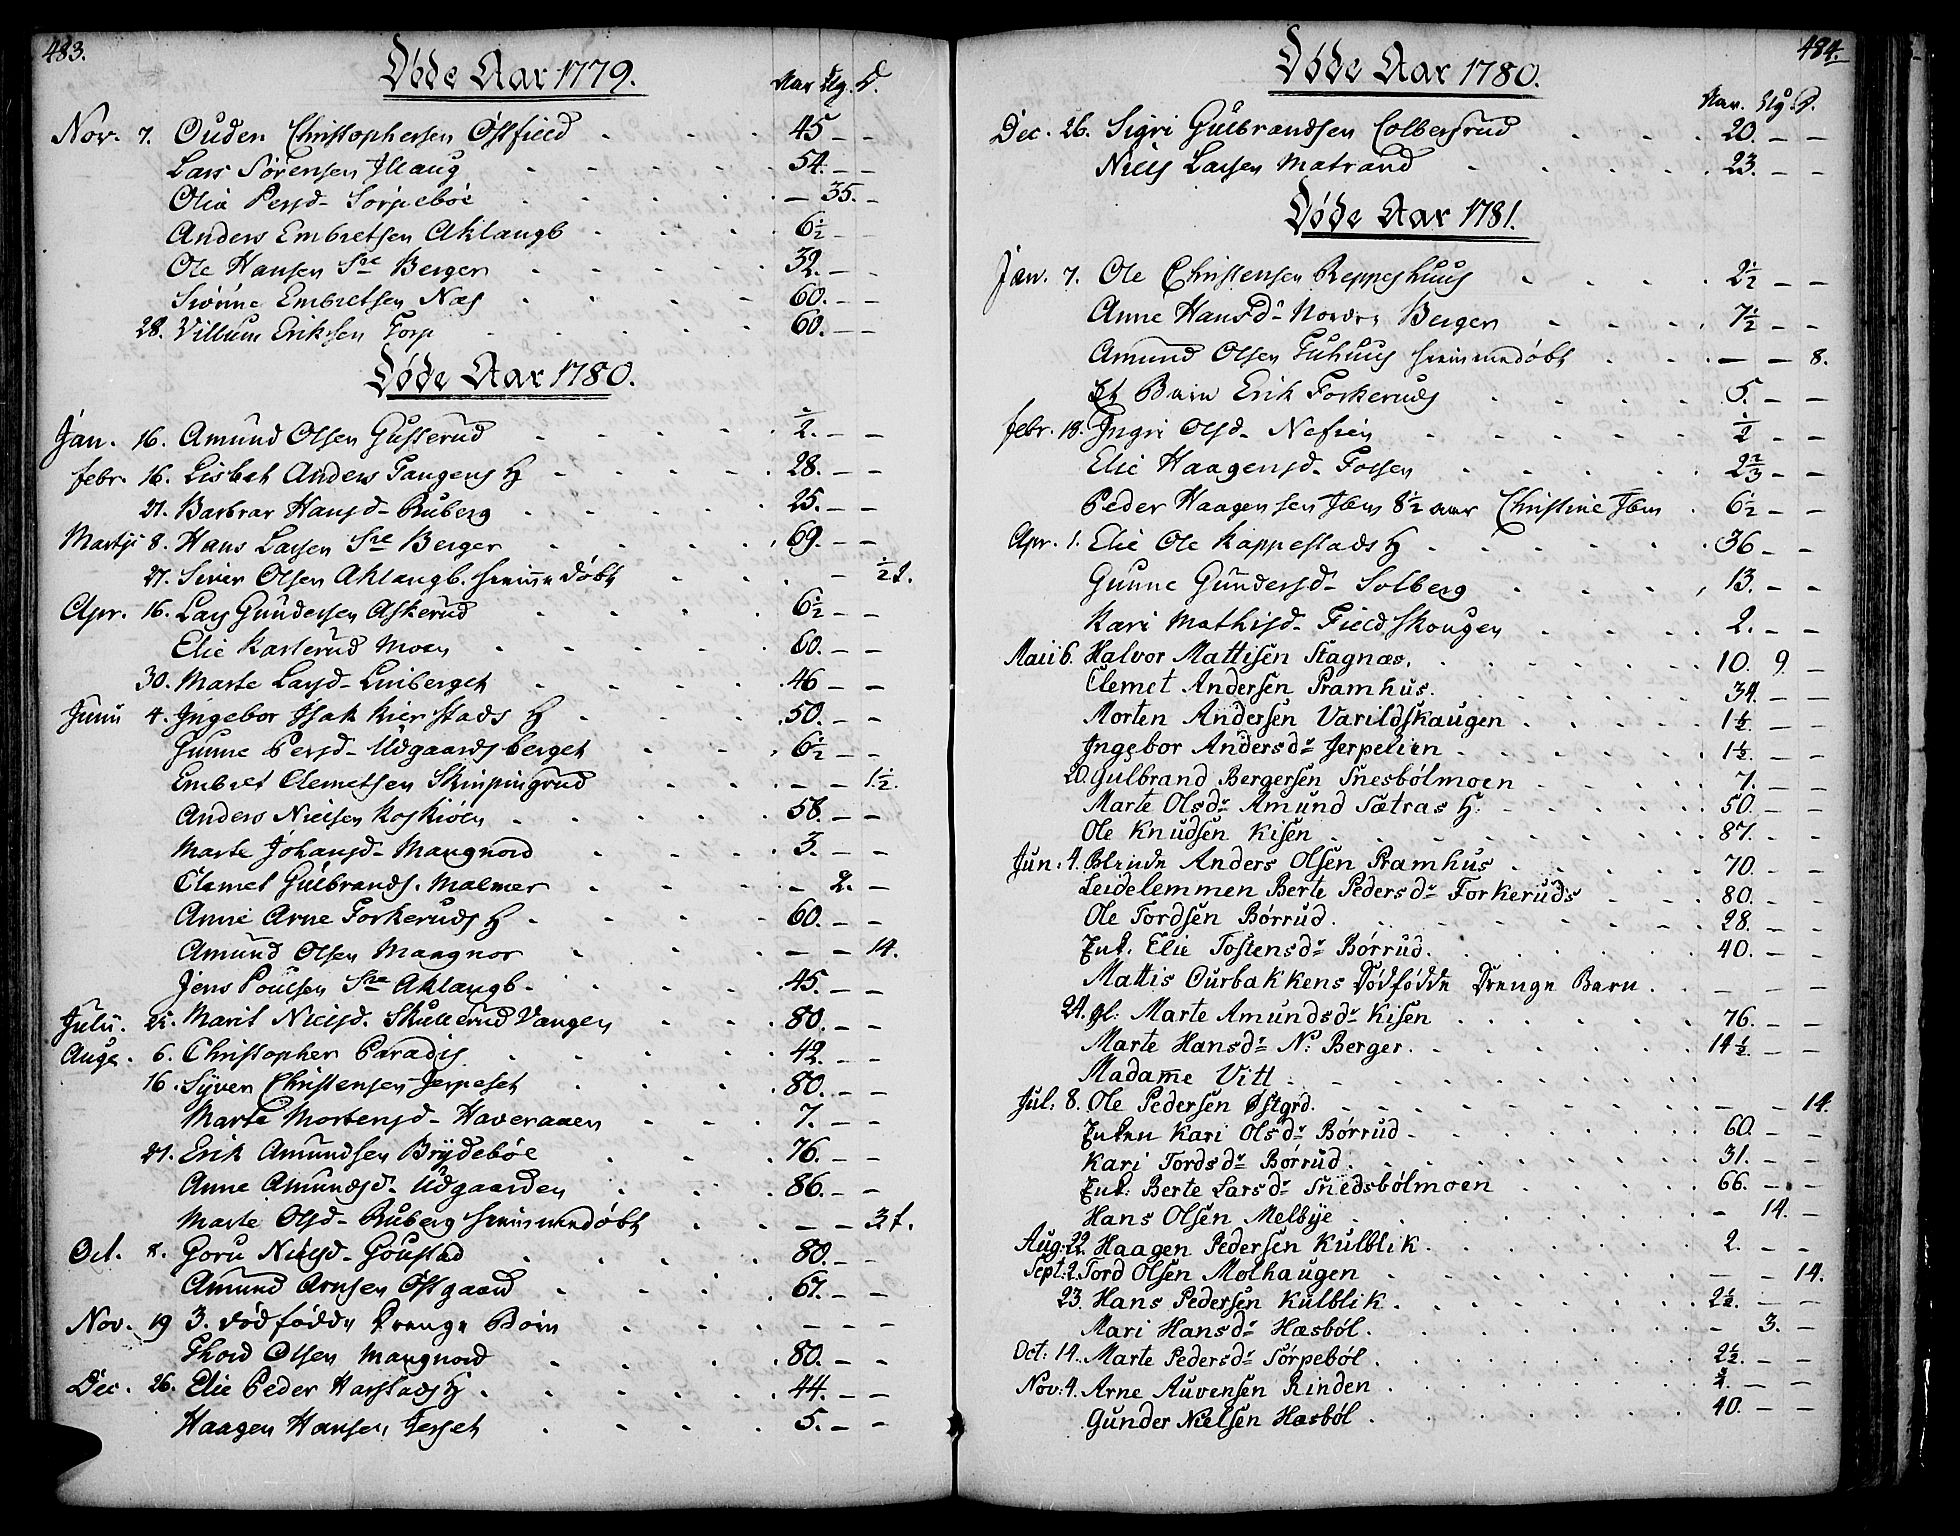 483.
Døde Aar 1779.
Aar Ug. D.
Nov. 7. Ouden Christophersen Østfield 45 – –
Lars Sørensen Illaug 54. – –
Olia Persd– Sørpebøe – 35. –
Anders Embretsen Aklangb 6½ – –
Ole Hansen Sre Berger 32. – –
Embretsen Næs 60. – –
28. Villum Eriksen Torp 60. – –
Døde Aar 1780.
Jan. 16. Amund Olsen Gusserud ½ – –
febr. 16. Lisbet Anders Tangens H 28. – –
21. Barbrar Hansd– Ruberg 25. – –
Martji 8. Hans Larsen Sre Berger 69. – –
27. Siver Olsen Aklangb. hiemmedøbt – ½ t.
Apr. 16. Lars Gundersen Askerud 6½ – –
Elie Kasterud Moen 60. – –
30. Marte Larsd– Linberget 46 – –
Junii 4. Ingebor Isak Kierstads H 50. – –
Gunne Persd– Udgaardsberget 6½ – –
Embret Clemetsen Skinpingrud – – 1½.
Anders Nielsen Koskiøen 58. – –
Marte Johansd– Mangnord 3. – –
Clemet Gulbrands. Malmer – 2. –
Anne Arne Torkeruds H 60. – –
Amund Olsen Maagnor – – 14.
Jens Poulsen Sre Aklangb. 45. – –
Julii. 25. Marit Nielsd. Skullerud Vangen 80. – –
Aug. 6. Christopher Paradis 42. – –
16. Syver Christensen Jerpeset 80. – –
Marte Mortensd– Haveraaen 7. – –
27. Erik Amundsen Brydebøe 76. – –
Anne Amundsd. Udgaarden 86. – –
Marte Olsd– Ruberg hiemmedøbt – – 3 t.
Oct. 8. Goru Nielsd– Goustad 80. – –
Amund Arnsen Østgaard 67. – –
Nov. 19 3. dødfødde Drenge Børn – – –
Thord Olsen Mangnord 80. – –
Dec. 26. Elie Peder Harstads H 44. – –
Haagen Hansen Jerset 5. – –
484.
Døde Aar 1780.
Aar. Ug. D.
Dec. 26. Sigri Gulbrandsen Colbersrud 20. – –
Niels Larsen Matrand 23. – –
Døde Aar 1781.
Jan. 7. Ole Christensen Reppeshuus 2½ – –
Anne Hansd– Nordre Berger 7½ – –
Amund Olsen Tuhuus hiemmedøbt – – 8.
Et Barn Erik Torkeruds 5. – –
febr. 18. Ingri Olsd– Nefsien ½ – –
Elie Haagensd– Fossen 2⅔ – –
Peder Haagensen Ibm 8½ aar Christine Ibm 6½ – –
Apr. 1. Elie Ole Kappestads H 36 – –
Gunne Gundersd– Solberg 13. – –
Kari Mathisd– Fieldskougen 2. – –
Maii 6. Halvor Mattisen Stagnæs. 10. 9. –
Clemet Andersen Pramhus. 34. – –
Morten Andersen Varildskaugen 1½. – –
Ingebor Andersdr Jerpelien 1½. – –
20. Gulbrand Bergersen Snesbølmoen 7. – –
Marte Olsdr Amund Sætras H. 50. – –
Ole Knudsen Kisen 87. – –
Jun: 4. Blinde Anders Olsen Pramhus 70. – –
Leidelemmen Berte Pedersdr Torkeruds 80. – –
Ole Tordsen Børrud. 28. – –
Enk. Elie Tostensdr Børrud. 40. – –
Mattis Ourbakkens Dødfødde Drenge Barn. – – –
24. gl: Marte Amundsdr Kisen 76. – –
Marte Hansdr N: Berger. 14½. – –
Madame Vitt
Jul: 8. Ole Pedersen Østgrd. – – 14.
Enken Kari Olsdr Børrud 60. – –
Kari Tordsdr Børrud. 31. – –
Enk: Berte Larsdr Snedsbølmoen 66. – –
Hans Olsen Melbye – 14. –
Aug: 22. Haagen Pedersen Kulblik. 2. – –
Sept: 2. Tord Olsen Molhaugen – – 14.
23. Hans Pedersen Kulblik. 2½. – –
Mari Hansdr Hæsbøl. – 3. –
Oct: 14. Marte Pedersdr Sørpebøl. 2½. – –
Nov: 4. Arne Auvensen Rinden. – –
Gunder Nielsen Hæsbøl. 40. – –